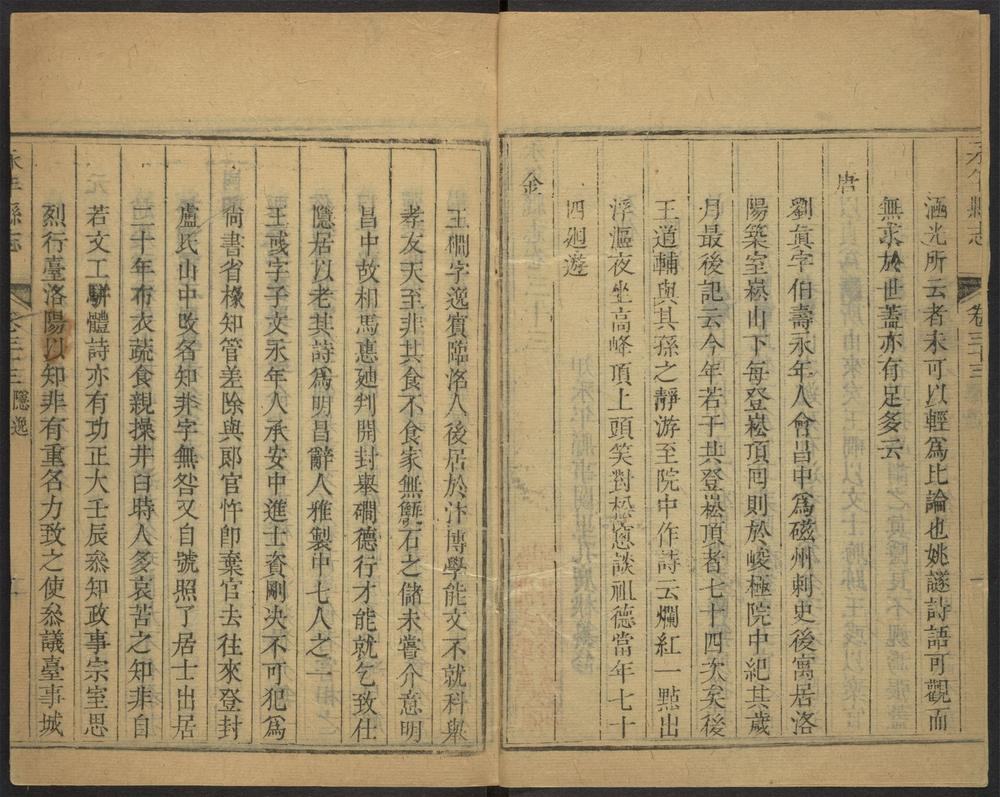 永年縣志
卷三十三
一
涵光所云者未可以輕爲比論也姚謎詩語可觀而
無求於世蓋亦有足多云
唐
劉眞字伯壽永年人會昌中爲磁州刺史後寓居洛
陽築室崧山下每登崧頂囘則於峻極院中紀其歲
月最後記云今年若干共登崧頂者七十四次矣後
王道輔與其孫之靜游至院中作詩云爛紅一點出
浮漚夜坐高峰頂上頭笑對松窻談祖德當年七十
四廻遊
金
王磵字逸賓臨洺人後居於汴博學能文不就科舉
孝友天至非其食不食家無甔石之儲未嘗介意明
昌中故相馬惠廸判開封舉磵德行才能就乞致仕
隱居以老其詩爲明昌辭人雅製中七人之一
王彧字子文永年人承安中進士資剛決不可犯爲
尙書省橡知管差除與郞官忤卽棄官去往來登封
盧氏山中改名知非字無咎又自號照了居士出居
二十年布衣蔬食親操井臼時人多哀苦之知非自
若文工駢體詩亦有功正大壬辰叅知政事宗室思
烈行臺洛陽以知非有重名力致之使叅議臺事城
元
永年縣志
卷三十三
隱逸